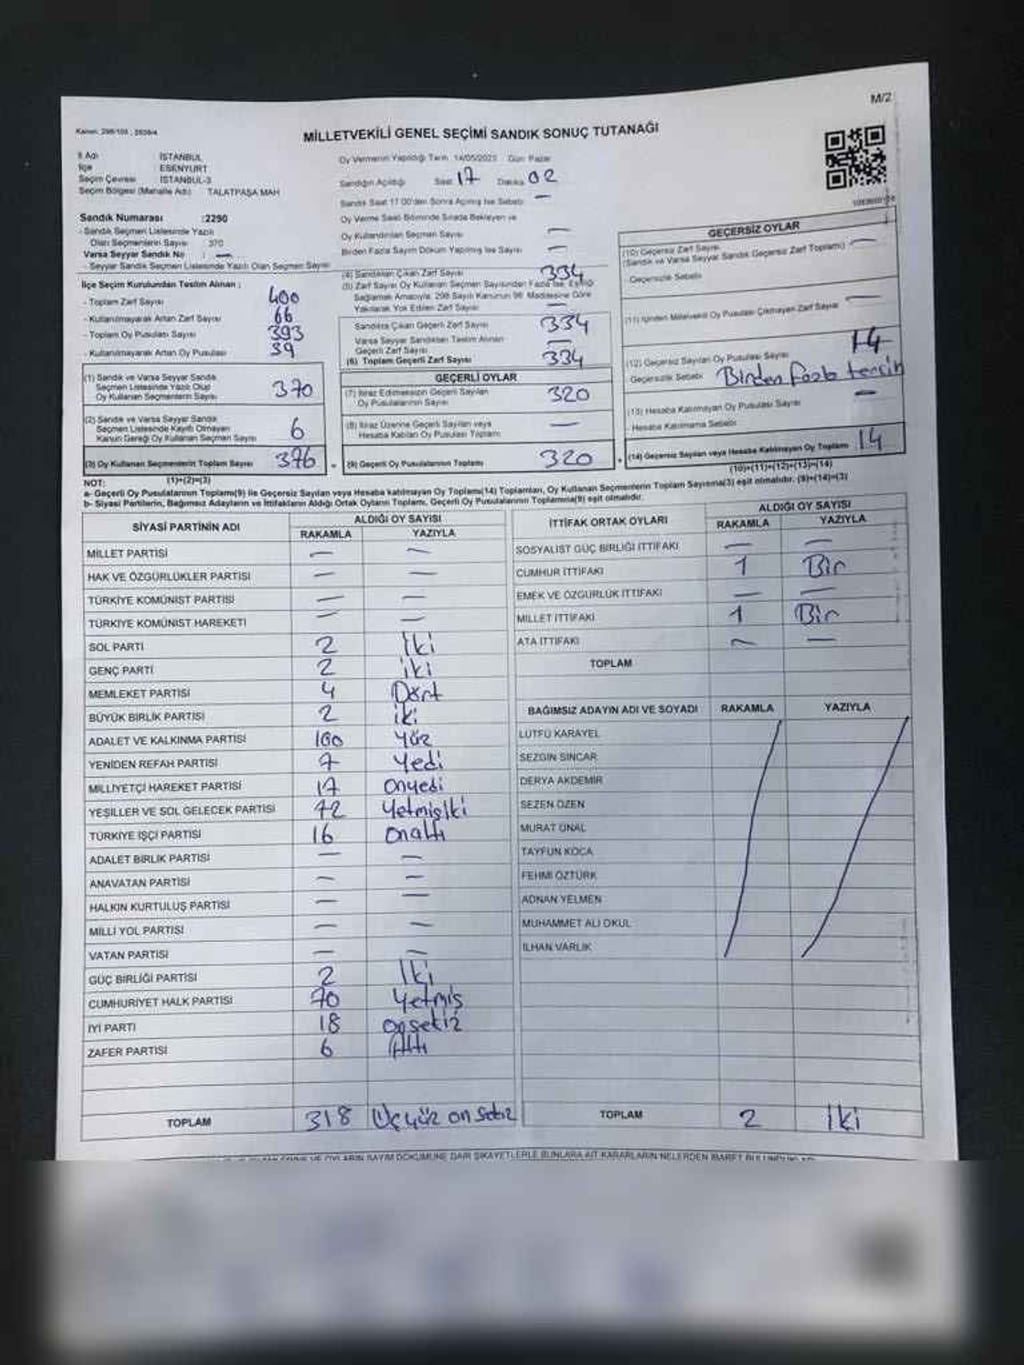 M/2
Kanun: 298/105 ; 2839/4
MİLLETVEKİLİ GENEL SEÇİMİ SANDIK SONUÇ TUTANAĞI
İl Adı : İSTANBUL
İlçe : ESENYURT
Seçim Çevresi : İSTANBUL-3
Seçim Bölgesi (Mahalle Adı) : TALATPAŞA MAH
Sandık Numarası :2290
- Sandık Seçmen Listesinde Yazılı
Olan Seçmenlerin Sayısı : 370
Varsa Seyyar Sandık No : —
- Seyyar Sandık Seçmen Listesinde Yazılı Olan Seçmen Sayısı
İlçe Seçim Kurulundan Teslim Alınan :
- Toplam Zarf Sayısı 400
- Kullanılmayarak Artan Zarf Sayısı 66
- Toplam Oy Pusulası Sayısı 393
- Kullanılmayarak Artan Oy Pusulası 39
(1) Sandık ve Varsa Seyyar Sandık
Seçmen Listesinde Yazılı Olup
Oy Kullanan Seçmenlerin Sayısı 370
(2) Sandık ve Varsa Seyyar Sandık
Seçmen Listesinde Kayıtlı Olmayan
Kanun Gereği Oy Kullanan Seçmen Sayısı 6
(3) Oy Kullanan Seçmenlerin Toplam Sayısı 376
(1)+(2)=(3)
Oy Vermenin Yapıldığı Tarih 14/05/2023 Gün Pazar
Sandığın Açıldığı Saat 17 Dakika 02
Sandık Saat 17.00'den Sonra Açılmış İse Sebebi —
Oy Verme Saati Bitiminde Sırada Bekleyen ve
Oy Kullandırılan Seçmen Sayısı —
Birden Fazla Sayım Döküm Yapılmış İse Sayısı —
(4) Sandıktan Çıkan Zarf Sayısı 334
(5) Zarf Sayısı Oy Kullanan Seçmen Sayısından Fazla İse, Eşitliği
Sağlamak Amacıyla, 298 Sayılı Kanunun 98. Maddesine Göre
Yakılarak Yok Edilen Zarf Sayısı —
Sandıkta Çıkan Geçerli Zarf Sayısı 334
Varsa Seyyar Sandıktan Teslim Alınan
Geçerli Zarf Sayısı —
(6) Toplam Geçerli Zarf Sayısı 334
GEÇERLİ OYLAR
(7) İtiraz Edilmeksizin Geçerli Sayılan
Oy Pusulalarının Sayısı 320
(8) İtiraz Üzerine Geçerli Sayılan veya
Hesaba Katılan Oy Pusulası Toplamı —
(9) Geçerli Oy Pusulalarının Toplamı 320
GEÇERSİZ OYLAR
(10) Geçersiz Zarf Sayısı
(Sandık ve Varsa Seyyar Sandık Geçersiz Zarf Toplamı) —
Geçersizlik Sebebi
(11) İçinden Milletvekili Oy Pusulası Çıkmayan Zarf Sayısı —
(12) Geçersiz Sayılan Oy Pusulası Sayısı 14
Geçersizlik Sebebi Birden fazla tercih
(13) Hesaba Katılmayan Oy Pusulası Sayısı —
Hesaba Katılmama Sebebi
(14) Geçersiz Sayılan veya Hesaba Katılmayan Oy Toplamı 14
(10)+(11)+(12)+(13)=(14)
NOT:
a- Geçerli Oy Pusulalarının Toplamı(9) ile Geçersiz Sayılan veya Hesaba katılmayan Oy Toplamı(14) Toplamları, Oy Kullanan Seçmenlerin Toplam Sayısına(3) eşit olmalıdır. (9)+(14)=(3)
b- Siyasi Partilerin, Bağımsız Adayların ve İttifakların Aldığı Ortak Oyların Toplamı, Geçerli Oy Pusulalarının Toplamına(9) eşit olmalıdır.
SİYASİ PARTİNİN ADI ALDIĞI OY SAYISI
RAKAMLA YAZIYLA
MİLLET PARTİSİ — —
HAK VE ÖZGÜRLÜKLER PARTİSİ — —
TÜRKİYE KOMÜNİST PARTİSİ — —
TÜRKİYE KOMÜNİST HAREKETİ — —
SOL PARTİ 2 İki
GENÇ PARTİ 2 iki
MEMLEKET PARTİSİ 4 Dört
BÜYÜK BİRLİK PARTİSİ 2 iki
ADALET VE KALKINMA PARTİSİ 100 Yüz
YENİDEN REFAH PARTİSİ 7 Yedi
MİLLİYETÇİ HAREKET PARTİSİ 17 onyedi
YEŞİLLER VE SOL GELECEK PARTİSİ 72 Yetmişiki
TÜRKİYE İŞÇİ PARTİSİ 16 onaltı
ADALET BİRLİK PARTİSİ — —
ANAVATAN PARTİSİ — —
HALKIN KURTULUŞ PARTİSİ — —
MİLLİ YOL PARTİSİ — —
VATAN PARTİSİ — —
GÜÇ BİRLİĞİ PARTİSİ 2 İki
CUMHURİYET HALK PARTİSİ 70 Yetmiş
İYİ PARTİ 18 onsekiz
ZAFER PARTİSİ 6 Altı
TOPLAM 318 Üçyüz on sekiz
İTTİFAK ORTAK OYLARI ALDIĞI OY SAYISI
RAKAMLA YAZIYLA
SOSYALİST GÜÇ BİRLİĞİ İTTİFAKI — —
CUMHUR İTTİFAKI 1 Bir
EMEK VE ÖZGÜRLÜK İTTİFAKI — —
MİLLET İTTİFAKI 1 Bir
ATA İTTİFAKI — —
TOPLAM
BAĞIMSIZ ADAYIN ADI VE SOYADI RAKAMLA YAZIYLA
LÜTFÜ KARAYEL
SEZGİN SİNCAR
DERYA AKDEMİR
SEZEN ÖZEN
MURAT ÜNAL
TAYFUN KOCA
FEHMİ ÖZTÜRK
ADNAN YELMEN
MUHAMMET ALİ OKUL
İLHAN VARLIK
TOPLAM 2 İki